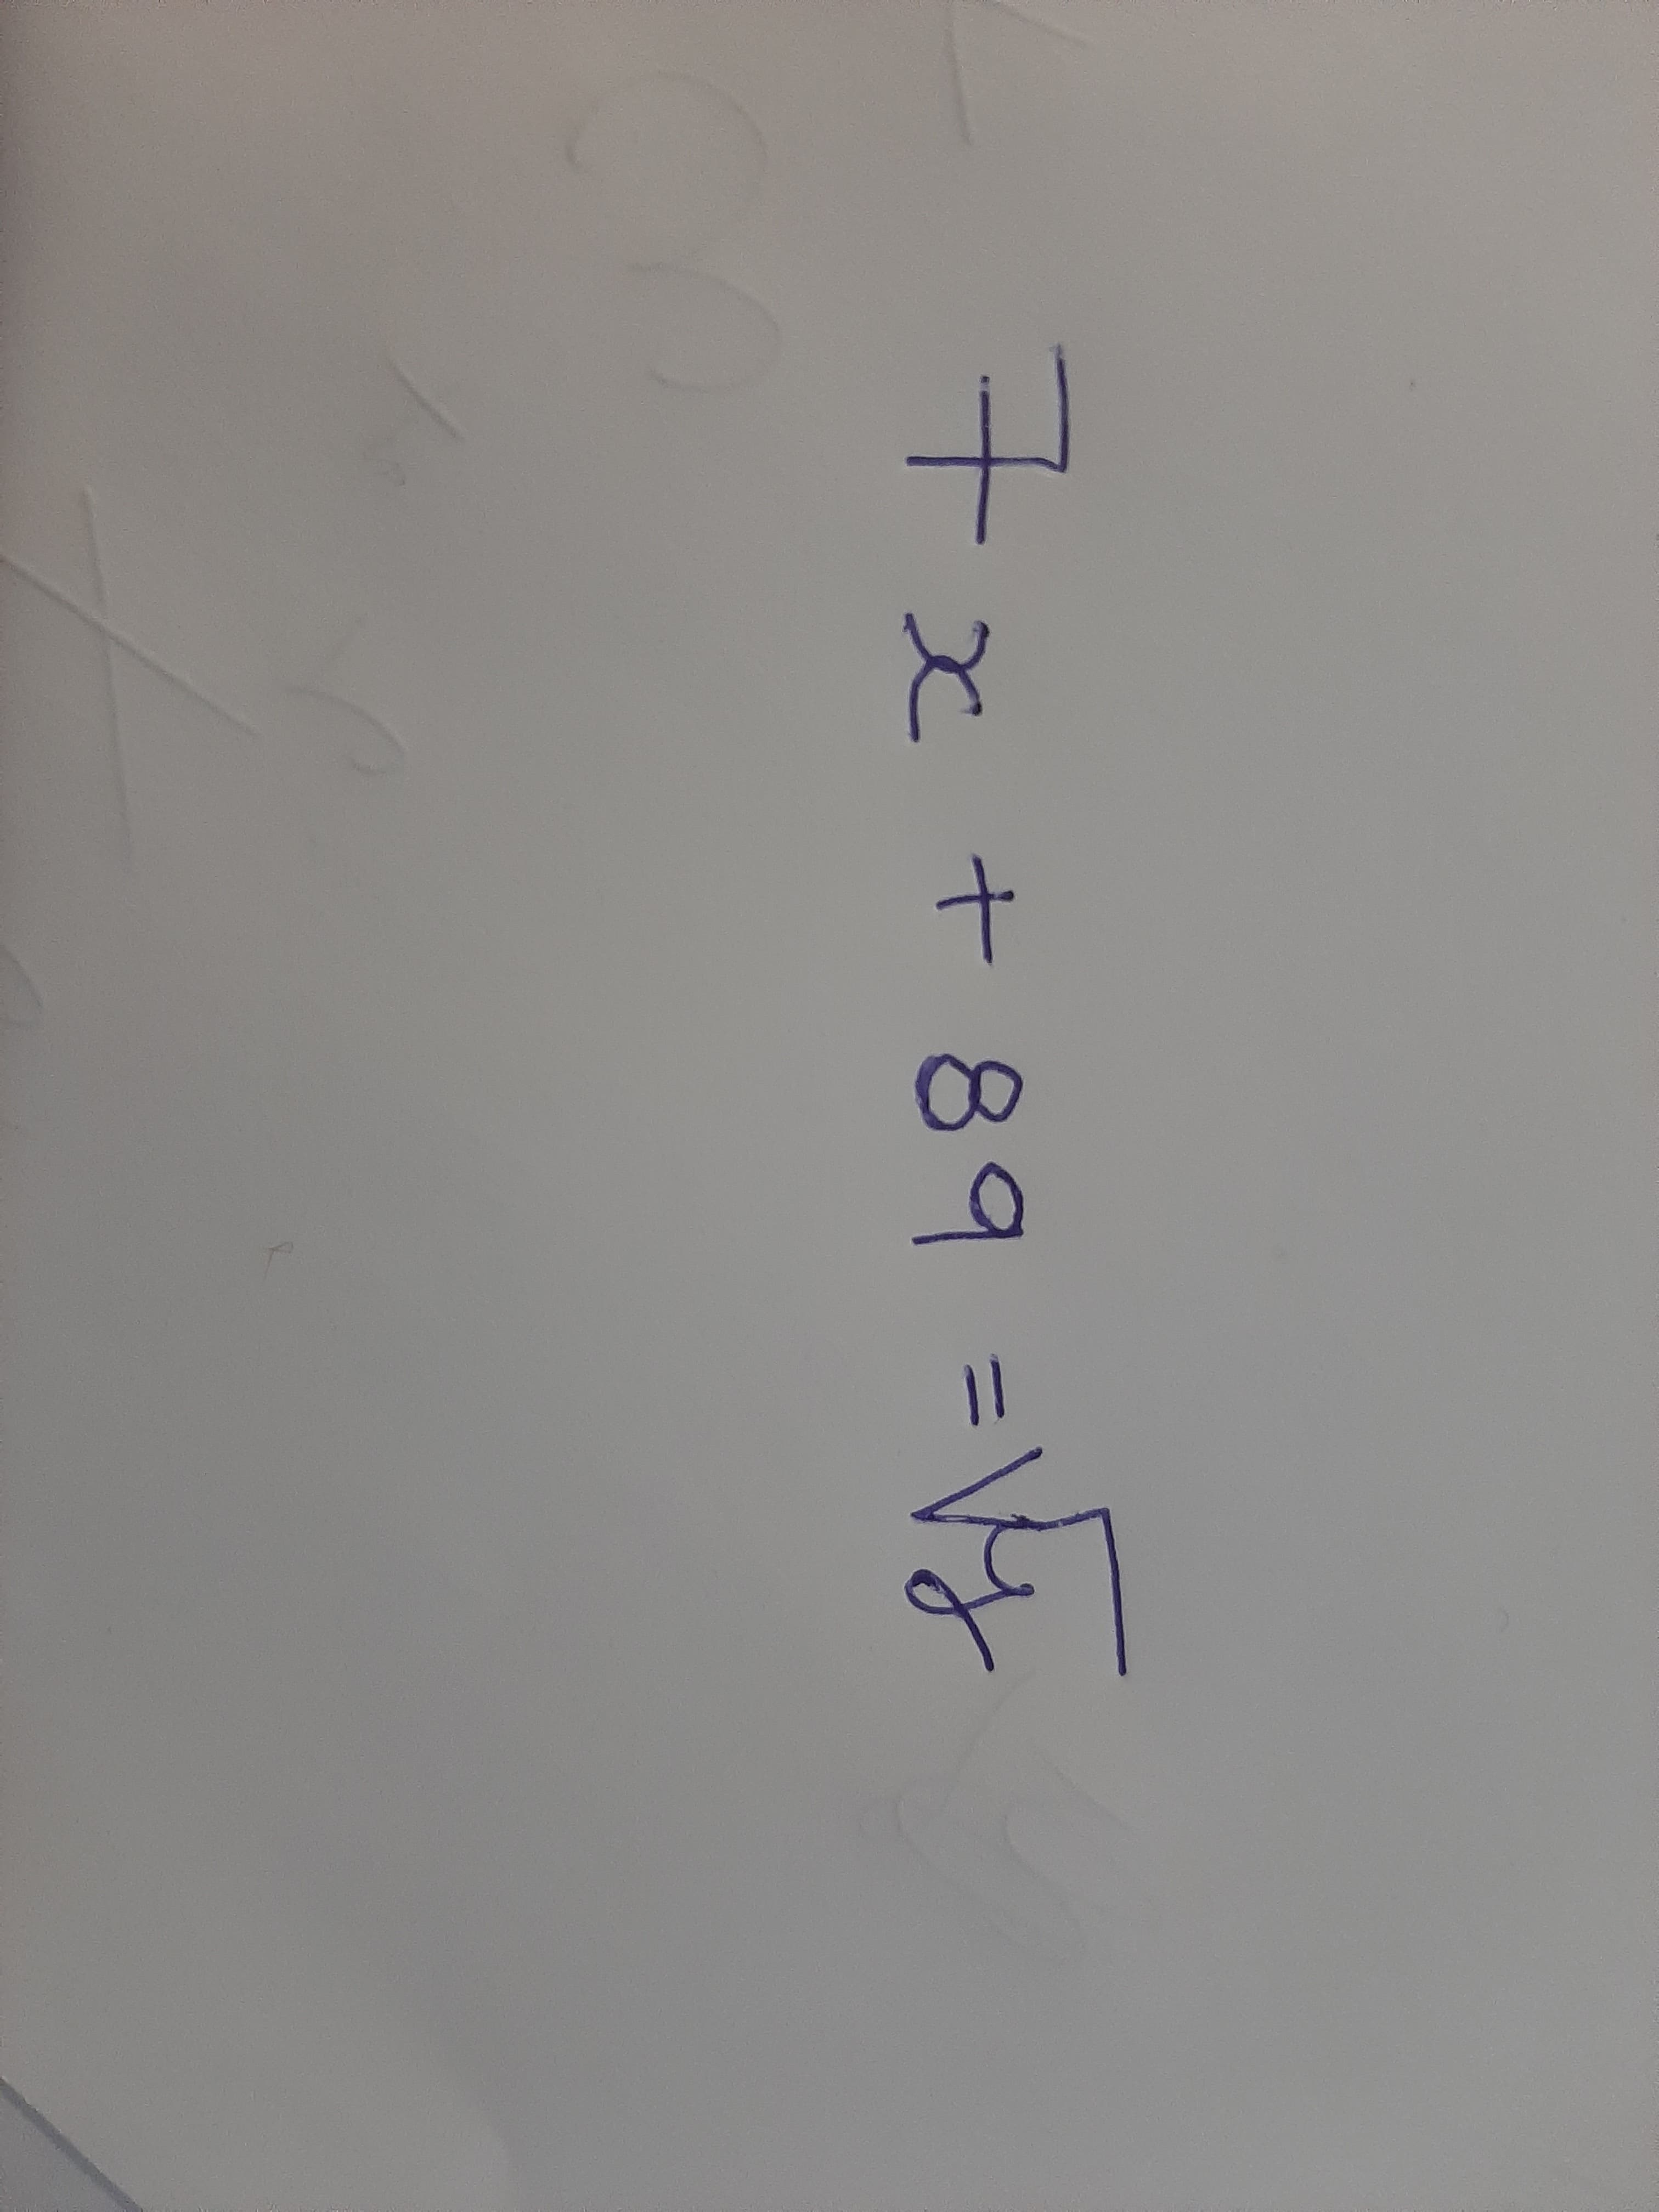 7x + 89 = √y